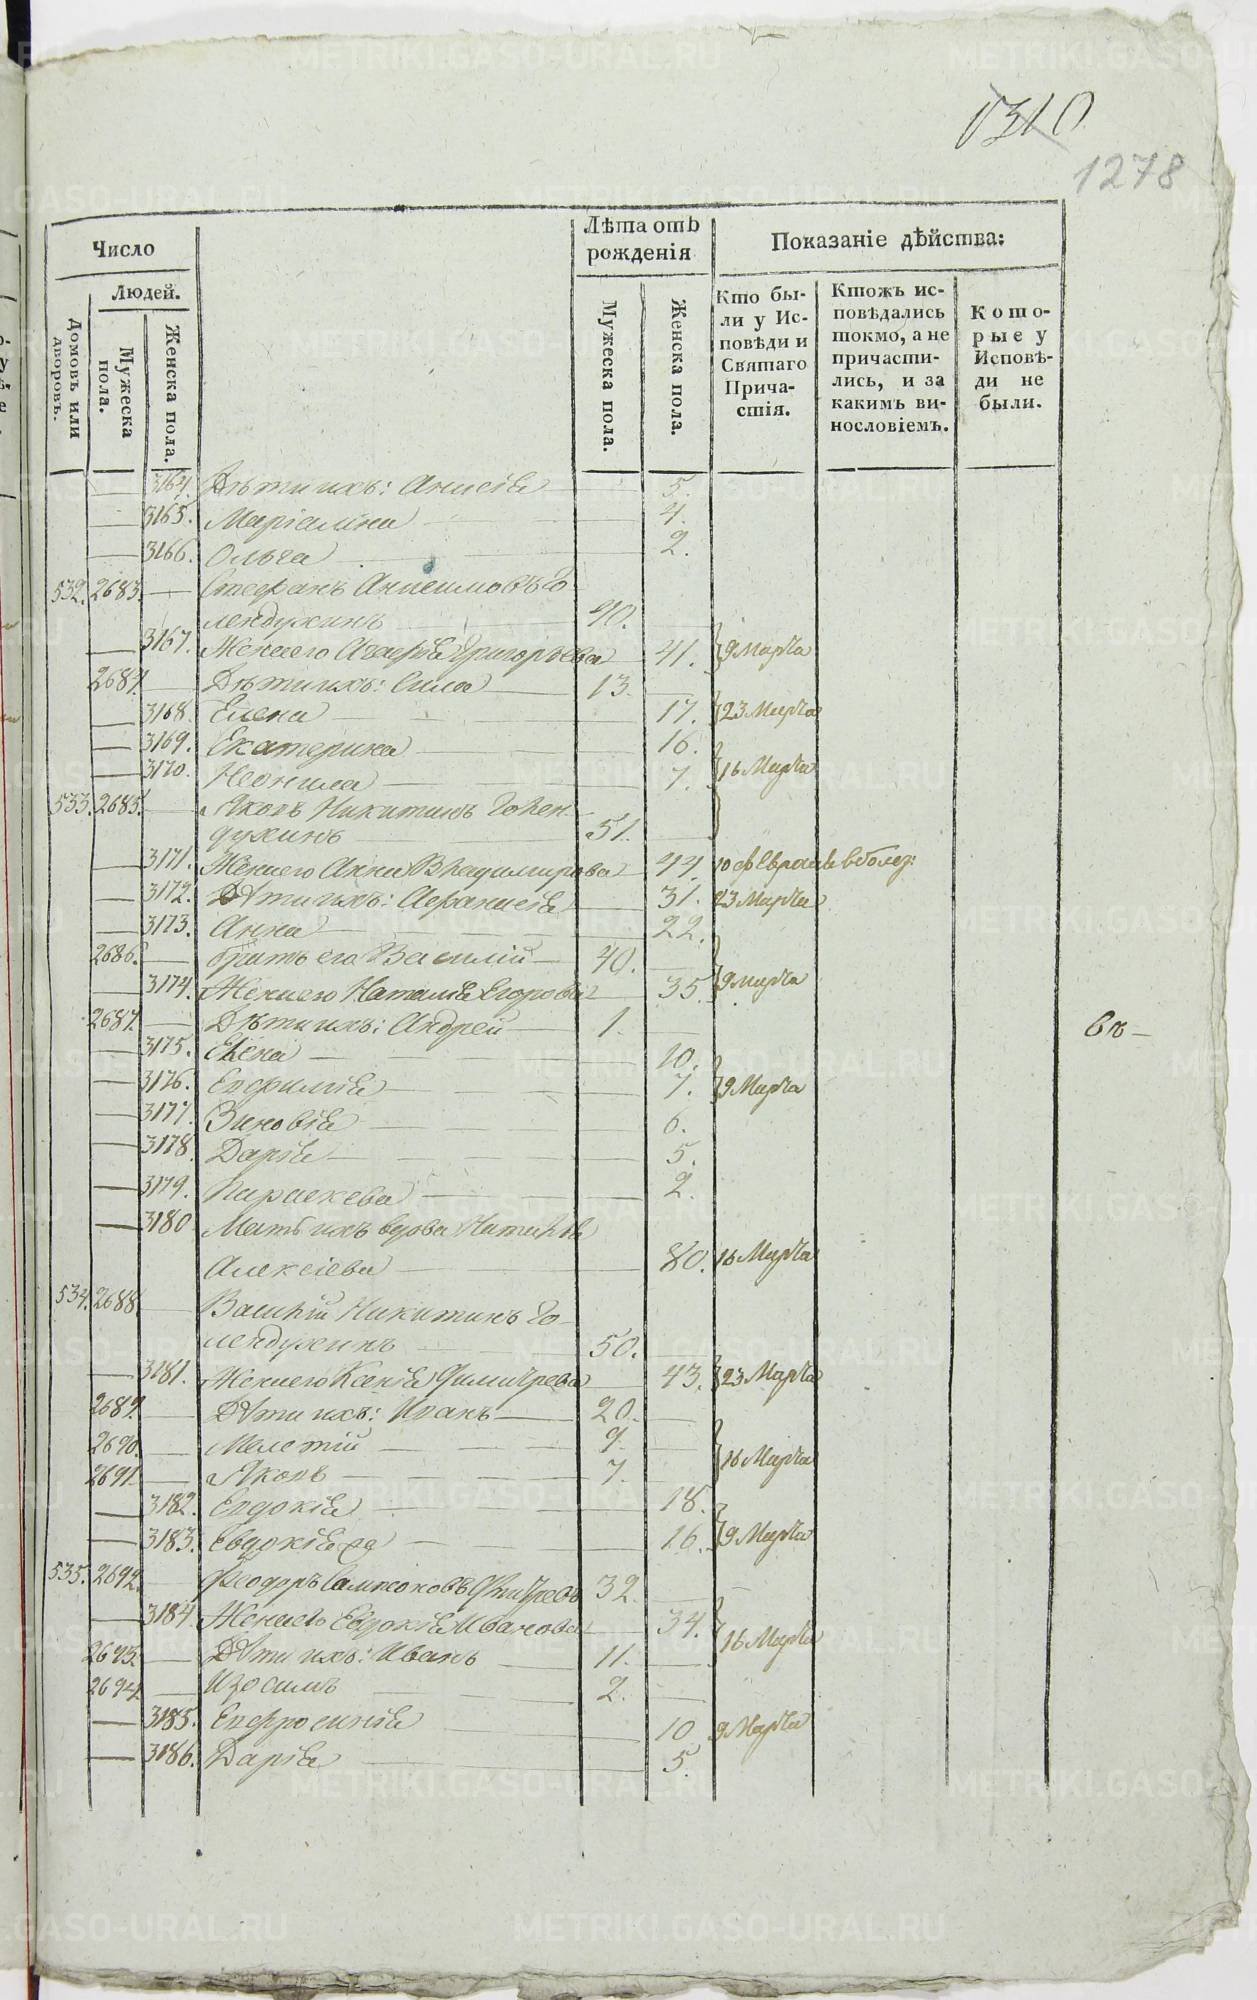 1310
1278
Число
Людей.
Домовъ или дворовъ.
Мужеска пола.
Женска пола.
Лѣта отъ
рожденія
Мужеска пола.
Женска пола.
Показаніе дѣйства:
Кто бы-
ли у Ис-
повѣди и
Святаго
Прича-
стія.
Ктожъ ис-
повѣдались
токмо, а не
причасти-
лись, и за
какимъ ви-
нословіемъ.
Кото-
рые у
Исповѣ-
ди не
были.
3164. Дѣти ихъ: Анисія 5.
3165. Маріамна 4.
3166. Ольга 2.
532. 2683. Стефанъ Анисимовъ Го
лендухинъ 40.
3167. Жена его Агафія Григорьева 41. 9 Марта
2684. Дѣти ихъ: Сила 13
3168. Елена 17. 23 Марта
3169. Екатерина 16.
3170. Неонила 7. 16 Марта
533. 2685. Яковъ Никитинъ Голен
духинъ 51.
3171. Жена его Анна Владимирова 44. 10 Февраля в болез:
3172. Дѣти ихъ: Афанасія 31. 23 Марта
3173. Анна 22.
2686. Братъ его Василій 40.
3174. Жена его Наталія Егорова 35 9 марта
2687. Дѣти ихъ: Андрей 1.
3175. Елена 10.
3176. Евфимія 7. 9 Марта
3177. Зиновія 6.
3178. Дарія 5.
3179. Параскева 2.
3180 Мать ихъ вдова
Алексіева 80. 16 Марта
534. 2688. Василій Никитинъ Го
лендухинъ 50.
3181. Жена его Ксенія Димитрева 43. 23 Марта
2689. Дѣти ихъ: Иванъ 20.
2690. Мелетій 9.
2691. Яковъ 7. 16 Марта
3182. Евдокія 18.
3183. Евдокія 16. 9 Марта
535. 2692. Феодоръ Сампсоновъ 32.
3184. Жена его Евдокія Иванова 34. 16 Марта
2693. Дѣти ихъ: Иванъ 11.
2694. Изосимъ 2.
3185. Евфросинія 10 9 Марта
3186. Дарія 5.